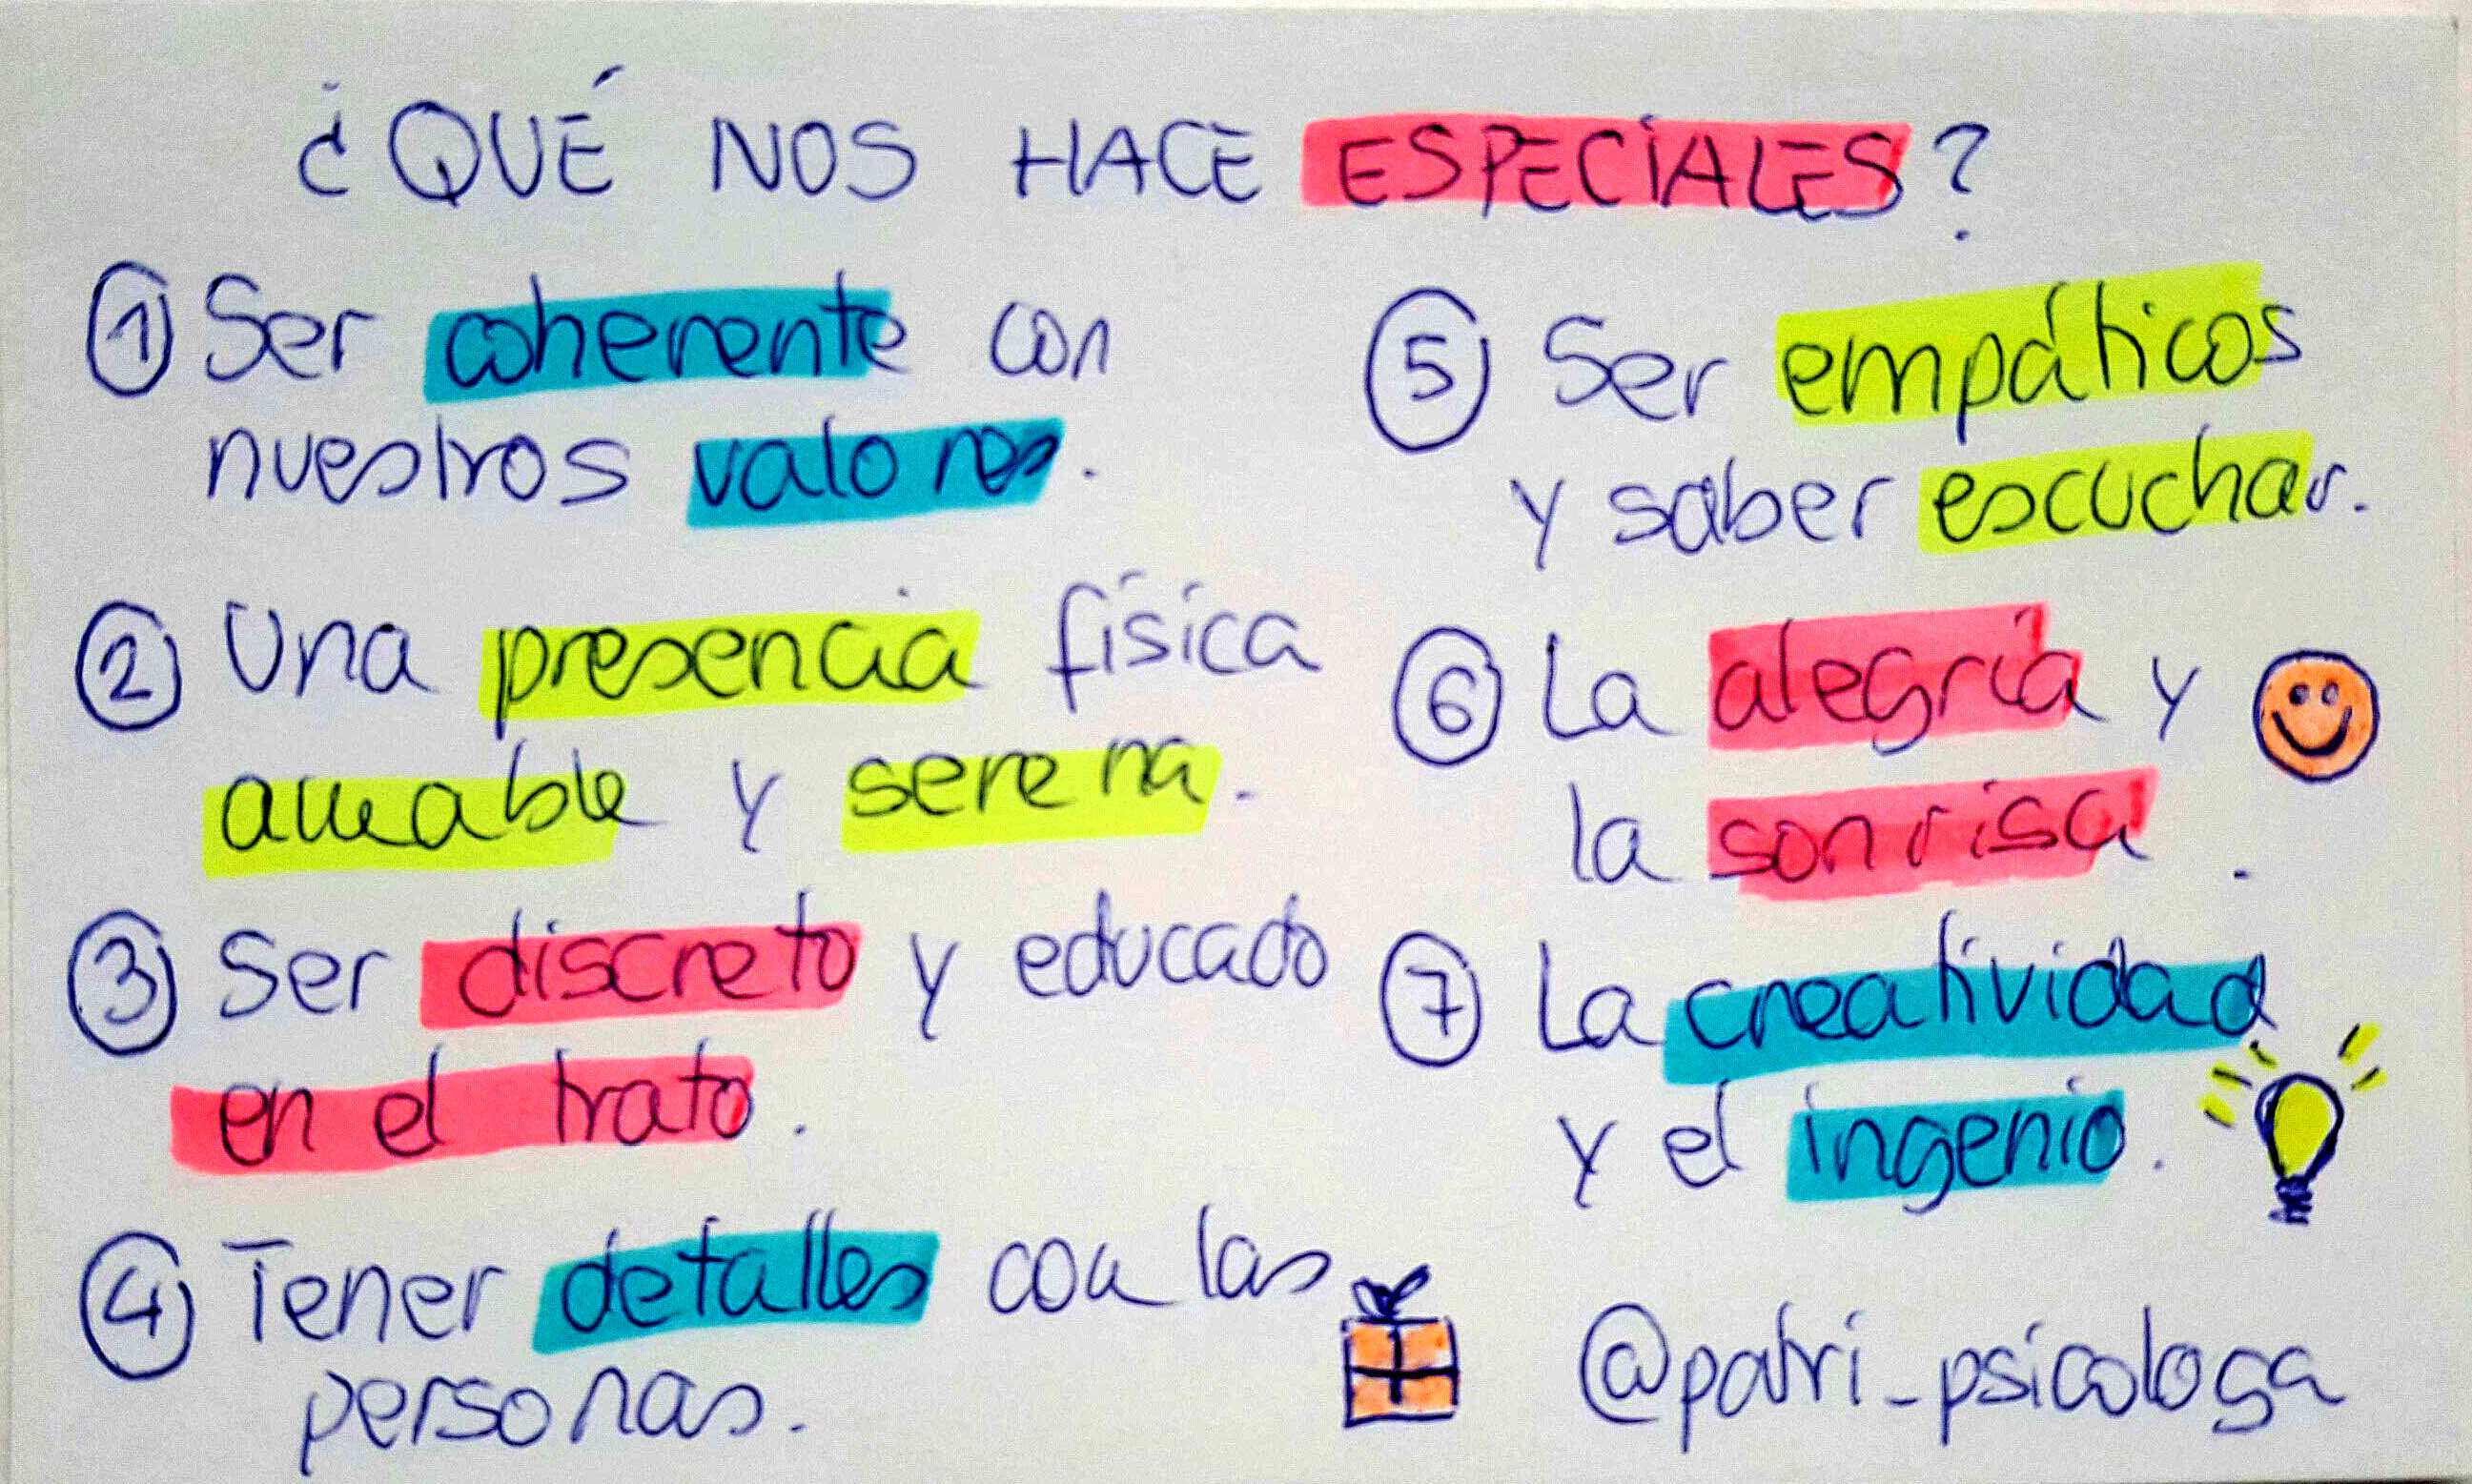 ¿QUÉ NOS HACE ESPECIALES?
① Ser coherente con
nuestros valores.
② Una presencia física
amable y serena.
③ Ser discreto y educado
en el trato.
④ Tener detalles con las
personas.
⑤ Ser empáticos
y saber escuchar.
⑥ La alegría y
la sonrisa.
⑦ La creatividad
y el ingenio.
@patri_psicologa